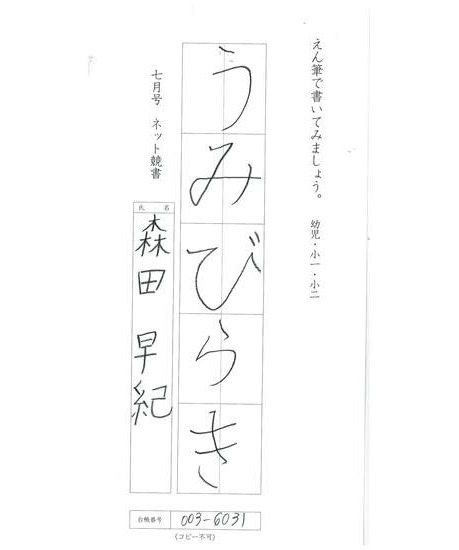 えん筆で書いてみましょう。　幼児・小一・小二
うみびらき
七月号　ネット競書
氏名
森田早紀
台帳番号　003-6031
(コピー不可)